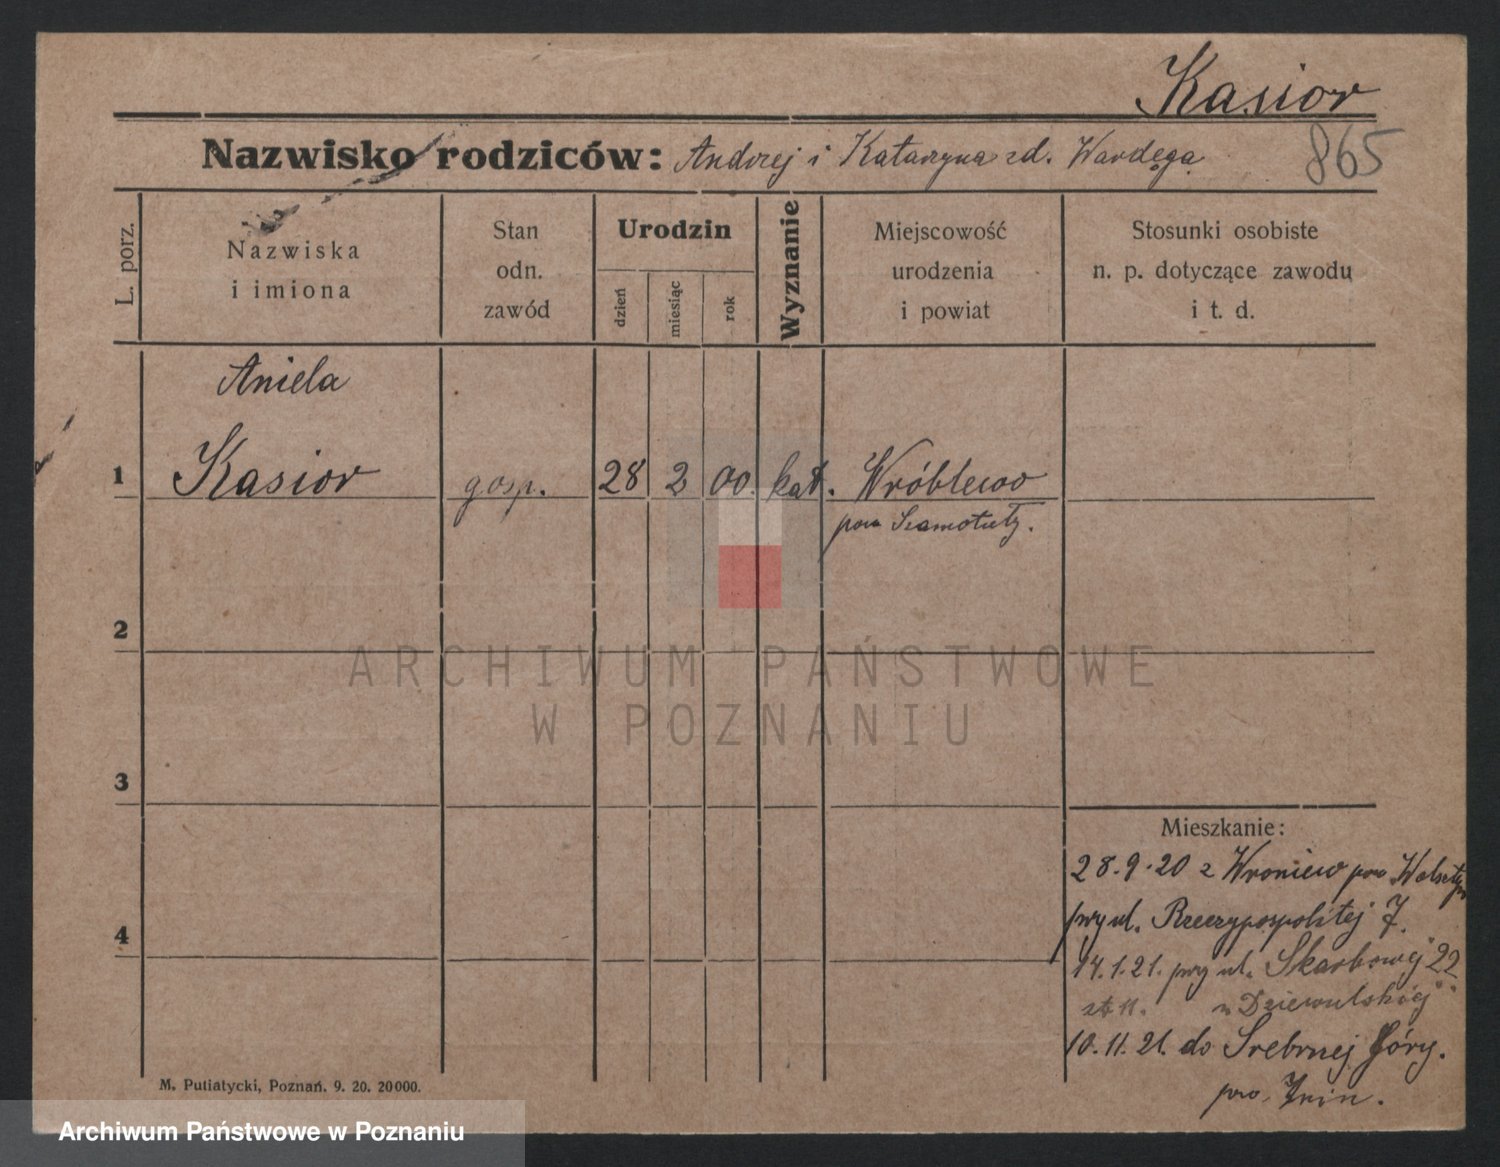 Kasior
Nazwisko rodziców: Andrzej i Katarzyna zd. Wardęga
865
L. porz.
Nazwiska
i imiona
Stan
odn.
zawód
Urodzin
dzień
miesiąc
rok
Wyznanie
Miejscowość
urodzenia
i powiat
Stosunki osobiste
n. p. dotyczące zawodu
i t. d.
Aniela
1 Kasior gosp. 28 2 00. kat. Wróblewo
pow Szamotuły.
2
ARCHIWUM PAŃSTWOWE
W POZNANIU
3
Mieszkanie:
28.9.20 z Wroniew pow Wolsztyn
4
przy ul. Rzeczypospolitej 7.
14.1.21. przy ul. Skarbowej 22
u Dziewulskiej
10.11.21. do Srebrnej Góry.
pow. Żnin.
M. Putiatycki, Poznań. 9. 20. 20000.
Archiwum Państwowe w Poznaniu